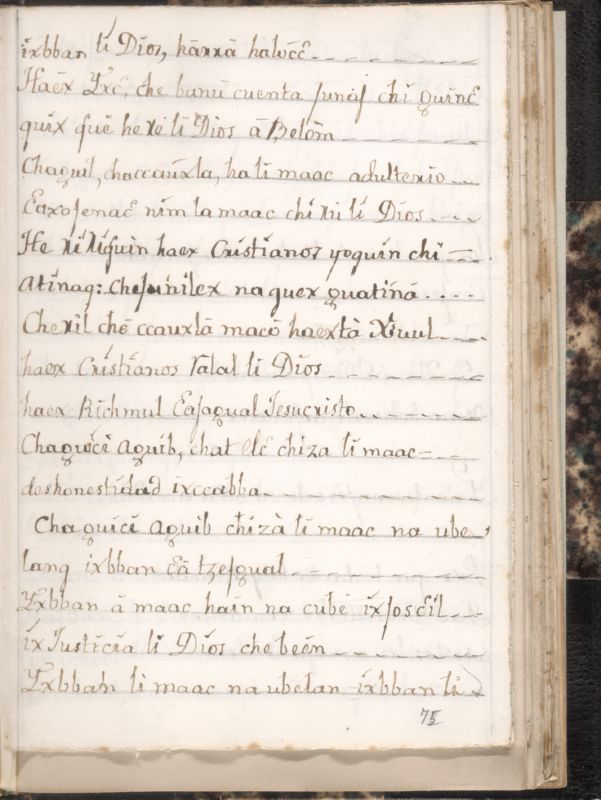 ixbban li Dios, hanna halocc̄
Haēx Yxc̄, che banū cuenta junaj chi quinc̄
quix quē he re li Dios ā Belōm
Chaguil, chaccauxla, ha li maac adulterio
Caxojenac̄ nim la maac chi ru li Dios
He ri riquin haex Cristianos yoquin chi
Atinaq: Chejunilex naquex quatina
Cheril chē ccauxlā maco haextà Xiuul
haex Cristianos ralal li Dios
haex Richmul Cajagual Jesucristo
Chaguici aguib, chat elc̄ chiza li maac
deshonestidad ixccabba
Chaguici aguib chizà li maac na ube
lanq ixbban Cā tzejgual
Yxbban ā maac hain na cubē ixjoscil
ix Justicia li Dios che beēn
Yxbban li maac na ubelan ixbban li
75